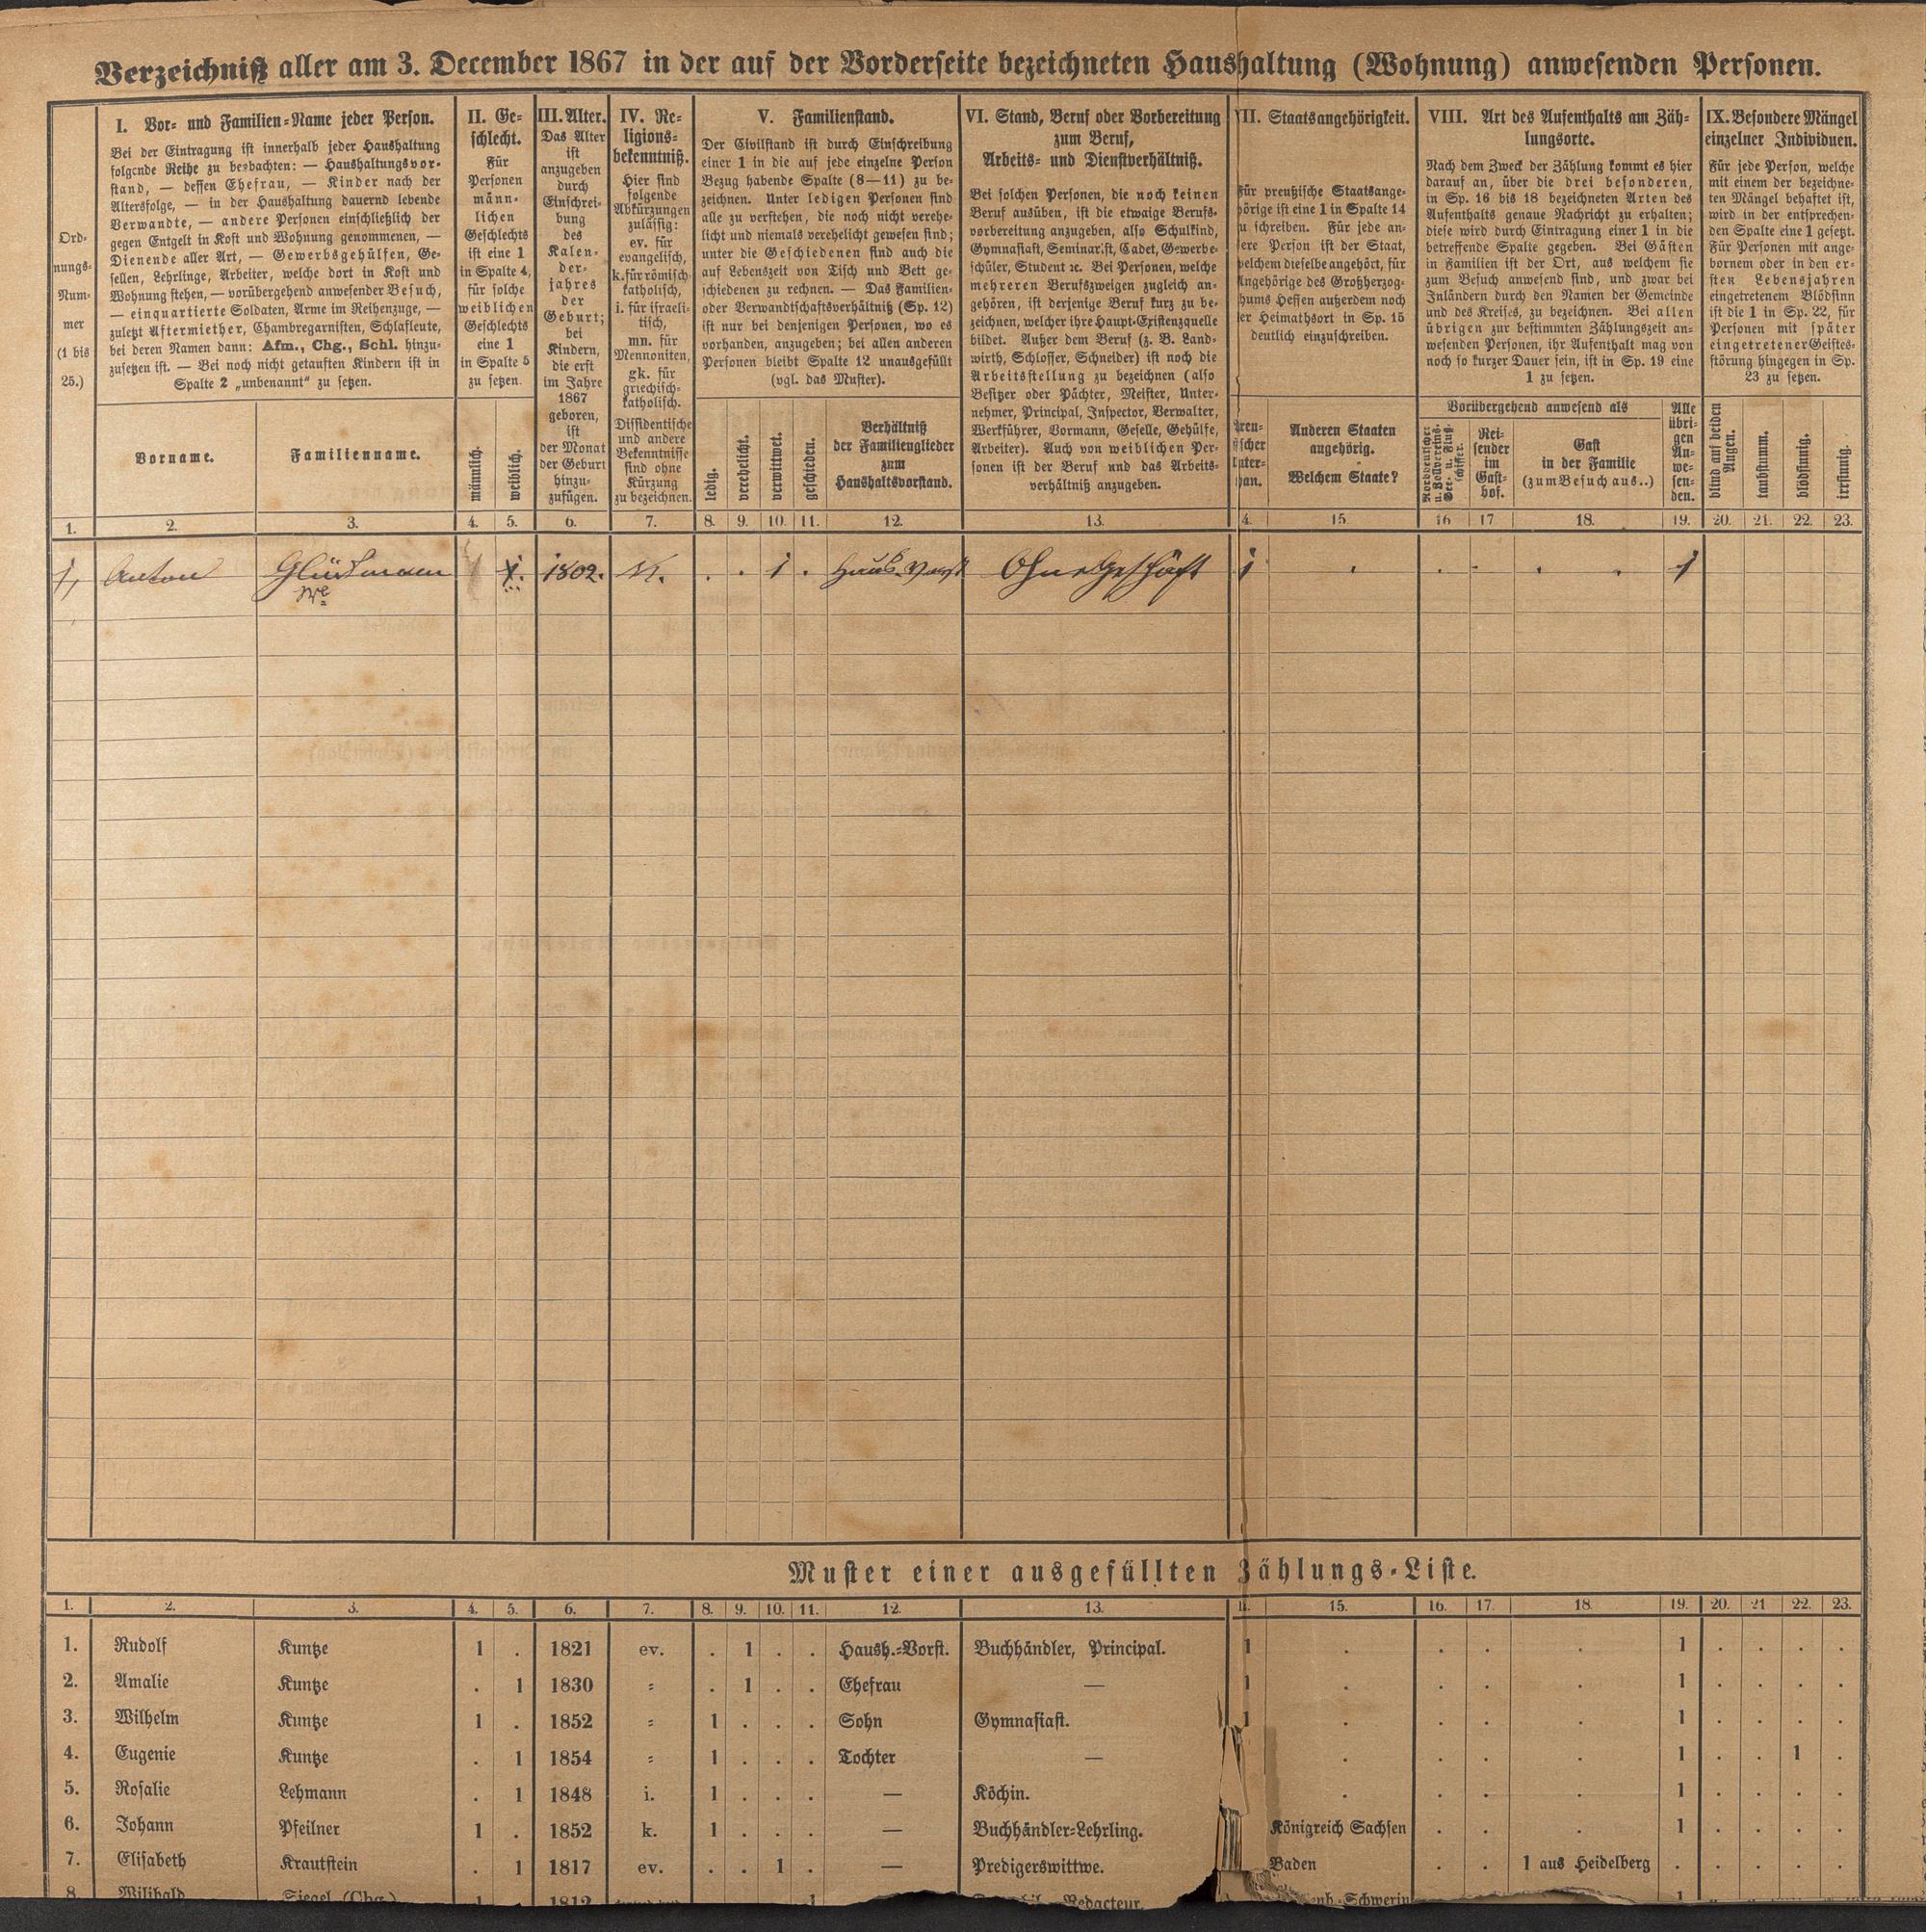 Verzeichniß aller am 3. December 1867 in der auf der Vorderseite bezeichneten Haushaltung (Wohnung) anwesenden Personen.
Ord-
nungs-
Num-
mer
(1 bis
25.)
I. Vor- und Familien-Name jeder Person.
Bei der Eintragung ist innerhalb jeder Haushaltung
folgende Reihe zu beobachten: — Haushaltungsvor-
stand, — dessen Ehefrau, — Kinder nach der
Altersfolge, — in der Haushaltung dauernd lebende
Verwandte, — andere Personen einschließlich der
gegen Entgelt in Kost und Wohnung genommenen, —
Dienende aller Art, — Gewerbsgehülfen, Ge-
sellen, Lehrlinge, Arbeiter, welche dort in Kost und
Wohnung stehen, — vorübergehend anwesender Besuch,
— einquartierte Soldaten, Arme im Reihenzuge, —
zuletzt Aftermiether, Chambregarnisten, Schlafleute,
bei deren Namen dann: Afm., Chg., Schl. hinzu-
zusetzen ist. — Bei noch nicht getauften Kindern ist in
Spalte 2 „unbenannt" zu setzen.
Vorname.
Familienname.
II. Ge-
schlecht.
Für
Personen
männ-
lichen
Geschlechts
ist eine 1
in Spalte 4,
für solche
weiblichen
Geschlechts
eine 1
in Spalte 5
zu setzen.
männlich.
weiblich.
III. Alter.
Das Alter
ist
anzugeben
durch
Einschrei-
bung
des
Kalen-
der-
jahres
der
Geburt;
bei
Kindern,
die erst
im Jahre
1867
geboren,
ist
der Monat
der Geburt
hinzu-
zufügen.
IV. Re-
ligions-
bekenntniß.
Hier sind
folgende
Abkürzungen
zulässig:
ev. für
evangelisch,
k. für römisch-
katholisch,
i. für israeli-
tisch,
mn. für
Mennoniten,
gk. für
griechisch-
katholisch.
Dissidentische
und andere
Bekenntnisse
sind ohne
Kürzung
zu bezeichnen.
V. Familienstand.
Der Civilstand ist durch Einschreibung
einer 1 in die auf jede einzelne Person
Bezug habende Spalte (8—11) zu be-
zeichnen. Unter ledigen Personen sind
alle zu verstehen, die noch nicht verehe-
licht und niemals verehelicht gewesen sind;
unter die Geschiedenen sind auch die
auf Lebenszeit von Tisch und Bett ge-
schiedenen zu rechnen. — Das Familien-
oder Verwandtschaftsverhältniß (Sp. 12)
ist nur bei denjenigen Personen, wo es
vorhanden, anzugeben; bei allen anderen
Personen bleibt Spalte 12 unausgefüllt
(vgl. das Muster).
ledig.
verehelicht.
verwittwet.
geschieden.
Verhältniß
der Familienglieder
zum
Haushaltsvorstand.
VI. Stand, Beruf oder Vorbereitung
zum Beruf,
Arbeits- und Dienstverhältniß.
Bei solchen Personen, die noch keinen
Beruf ausüben, ist die etwaige Berufs-
vorbereitung anzugeben, also Schulkind,
Gymnasiast, Seminarist, Cadet, Gewerbe-
schüler, Student ꝛc. Bei Personen, welche
mehreren Berufszweigen zugleich an-
gehören, ist derjenige Beruf kurz zu be-
zeichnen, welcher ihre Haupt-Existenzquelle
bildet. Außer dem Beruf (z. B. Land-
wirth, Schlosser, Schneider) ist noch die
Arbeitsstellung zu bezeichnen (also
Besitzer oder Pächter, Meister, Unter-
nehmer, Principal, Inspector, Verwalter,
Werkführer, Vormann, Geselle, Gehülfe,
Arbeiter). Auch von weiblichen Per-
sonen ist der Beruf und das Arbeits-
verhältniß anzugeben.
VII. Staatsangehörigkeit.
Für preußische Staatsange-
hörige ist eine 1 in Spalte 14
u schreiben. Für jede an-
ere Person ist der Staat,
welchem dieselbe angehört, für
Angehörige des Großherzog-
hums Hessen außerdem noch
er Heimathsort in Sp. 15
deutlich einzuschreiben.
Preu-
ßischer
Unter-
than.
Anderen Staaten
angehörig.
Welchem Staate?
VIII. Art des Aufenthalts am Zäh-
lungsorte.
Nach dem Zweck der Zählung kommt es hier
darauf an, über die drei besonderen,
in Sp. 16 bis 18 bezeichneten Arten des
Aufenthalts genaue Nachricht zu erhalten;
diese wird durch Eintragung einer 1 in die
betreffende Spalte gegeben. Bei Gästen
in Familien ist der Ort, aus welchem sie
zum Besuch anwesend sind, und zwar bei
Inländern durch den Namen der Gemeinde
und des Kreises, zu bezeichnen. Bei allen
übrigen zur bestimmten Zählungszeit an-
wesenden Personen, ihr Aufenthalt mag von
noch so kurzer Dauer sein, ist in Sp. 19 eine
1 zu setzen.
Vorübergehend anwesend als
Norddeutscher
u. Zollvereins-
See- u. Fluß-
schiffer.
Rei-
sender
im
Gast-
hof.
Gast
in der Familie
(zum Besuch aus..)
Alle
übri-
gen
An-
we-
sen-
den.
IX. Besondere Mängel
einzelner Individuen.
Für jede Person, welche
mit einem der bezeichne-
ten Mängel behaftet ist,
wird in der entsprechen-
den Spalte eine 1 gesetzt.
Für Personen mit ange-
bornem oder in den er-
sten Lebensjahren
eingetretenem Blödsinn
ist die 1 in Sp. 22, für
Personen mit später
eingetretener Geistes-
störung hingegen in Sp.
23 zu setzen.
blind auf beiden
Augen.
taubstumm.
blödsinnig.
irrsinnig.
1. 2. 3. 4. 5. 6. 7. 8. 9. 10. 11. 12. 13. 4. 15 16 17 18. 19. 20. 21. 22. 23.
1, Anton Glückmann 1. 1802. K. . . 1 . Haus-Vorst Ohne Geschäft 1 . . . . . 1
We
Muster einer ausgefüllten Zählungs-Liste.
1. 2. 3. 4. 5. 6. 7. 8. 9. 10. 11. 12. 13. 15. 16. 17. 18. 19. 20. 21 22. 23.
1. Rudolf Kuntze 1 . 1821 ev. . 1 . . Haush.-Vorst. Buchhändler, Principal. 1 . . . . 1 . . . .
2. Amalie Kuntze . 1 1830 = . 1 . . Ehefrau — 1 . . . . 1 . . . .
3. Wilhelm Kuntze 1 . 1852 = 1 . . . Sohn Gymnasiast. 1 . . . . 1 . . . .
4. Eugenie Kuntze . 1 1854 = 1 . . . Tochter — . . . . 1 . . 1 .
5. Rosalie Lehmann . 1 1848 i. 1 . . . — Köchin. . . . . 1 . . . .
6. Johann Pfeilner 1 . 1852 k. 1 . . . — Buchhändler-Lehrling. Königreich Sachsen . . . 1 . . . .
7. Elisabeth Krautstein . 1 1817 ev. . . 1 . — Predigerswittwe. Baden . . 1 aus Heidelberg . . . . .
8. Wilibald Siegel (Chg.) 1 . 1812 1 Redacteur. Schwerin 1